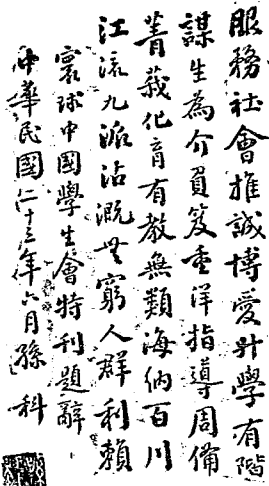 服務社會推誠博愛升學有階
謀生為介負笈重洋指導周備
菁莪化育有教無類海納百川
江流九派沾溉無窮人群利賴
寰球中國學生會特刊題辭
中華民國二十三年六月孫科